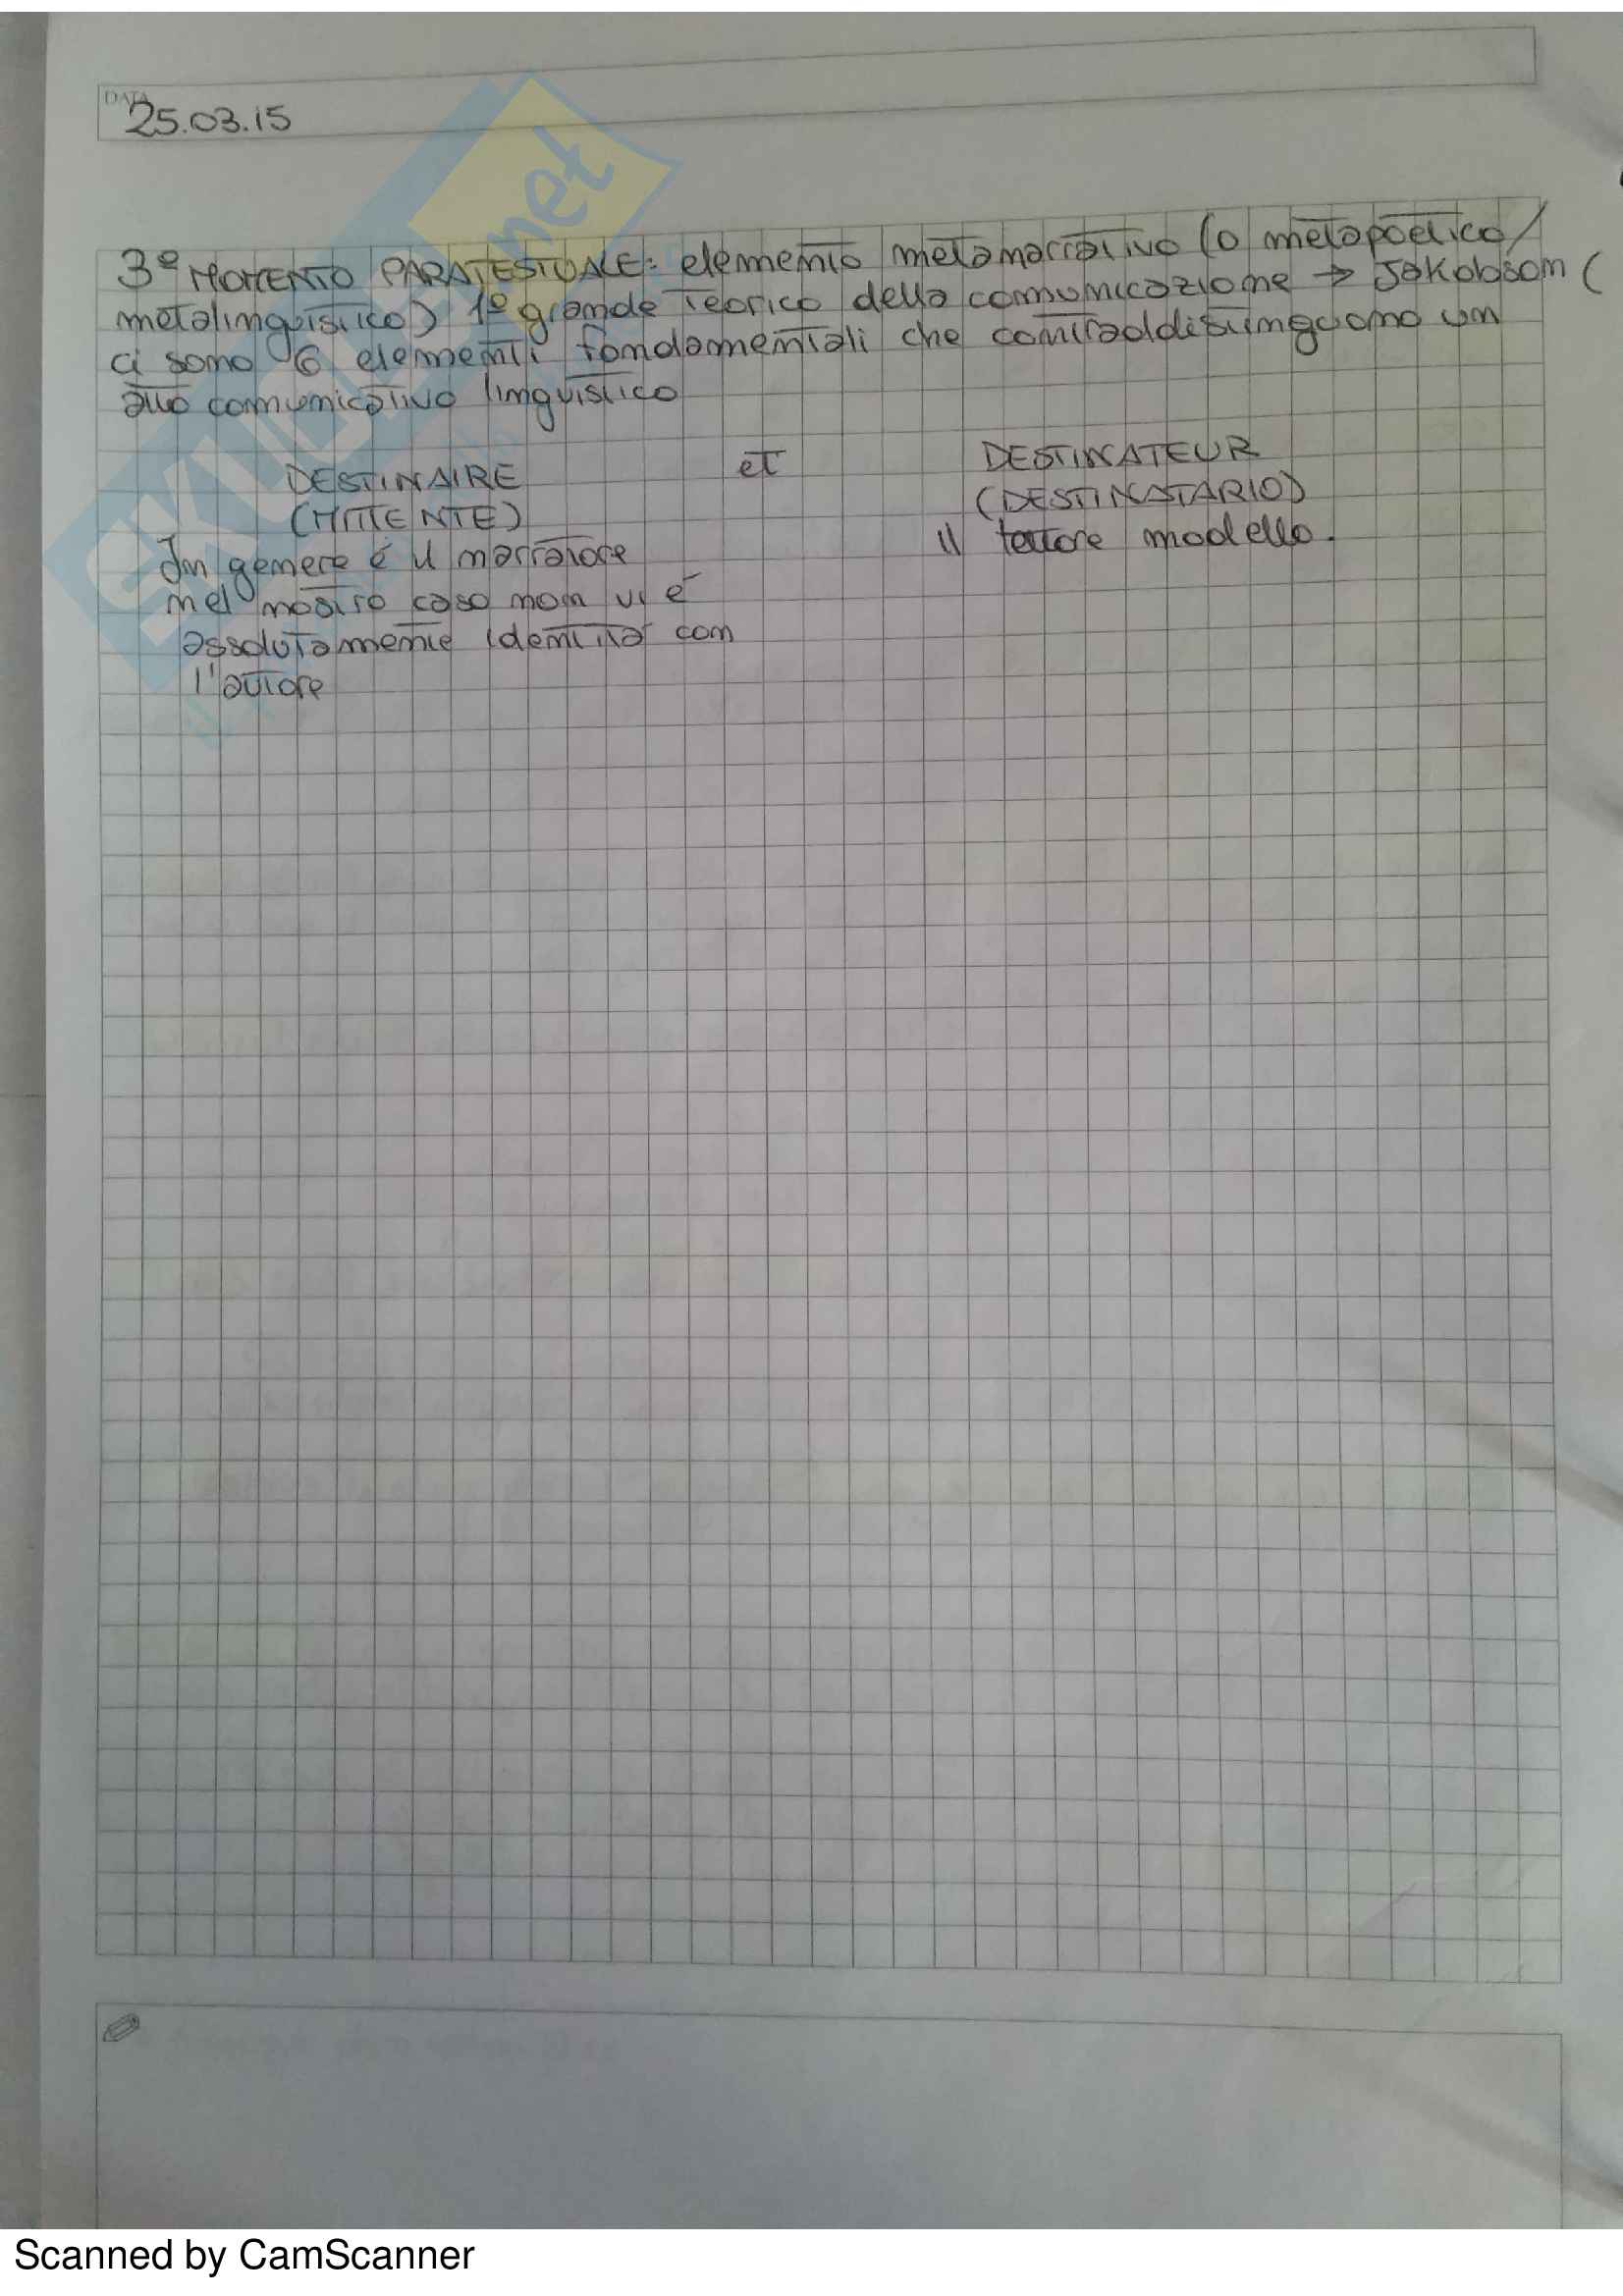 DATA
25.03.15
3° MOMENTO PARATESTUALE: elemento metanarrativo (o metapoetico/
metalinguistico) 1° grande teorico della comunicazione → Jakobson (
ci sono 6 elementi fondamentali che contraddistinguono un
atto comunicativo linguistico
DESTINAIRE et DESTINATEUR
(MITTENTE) (DESTINATARIO)
In genere é il narratore il lettore modello.
nel nostro caso non vi é
assolutamente identità con
l'autore
SKUOLA.net
Scanned by CamScanner